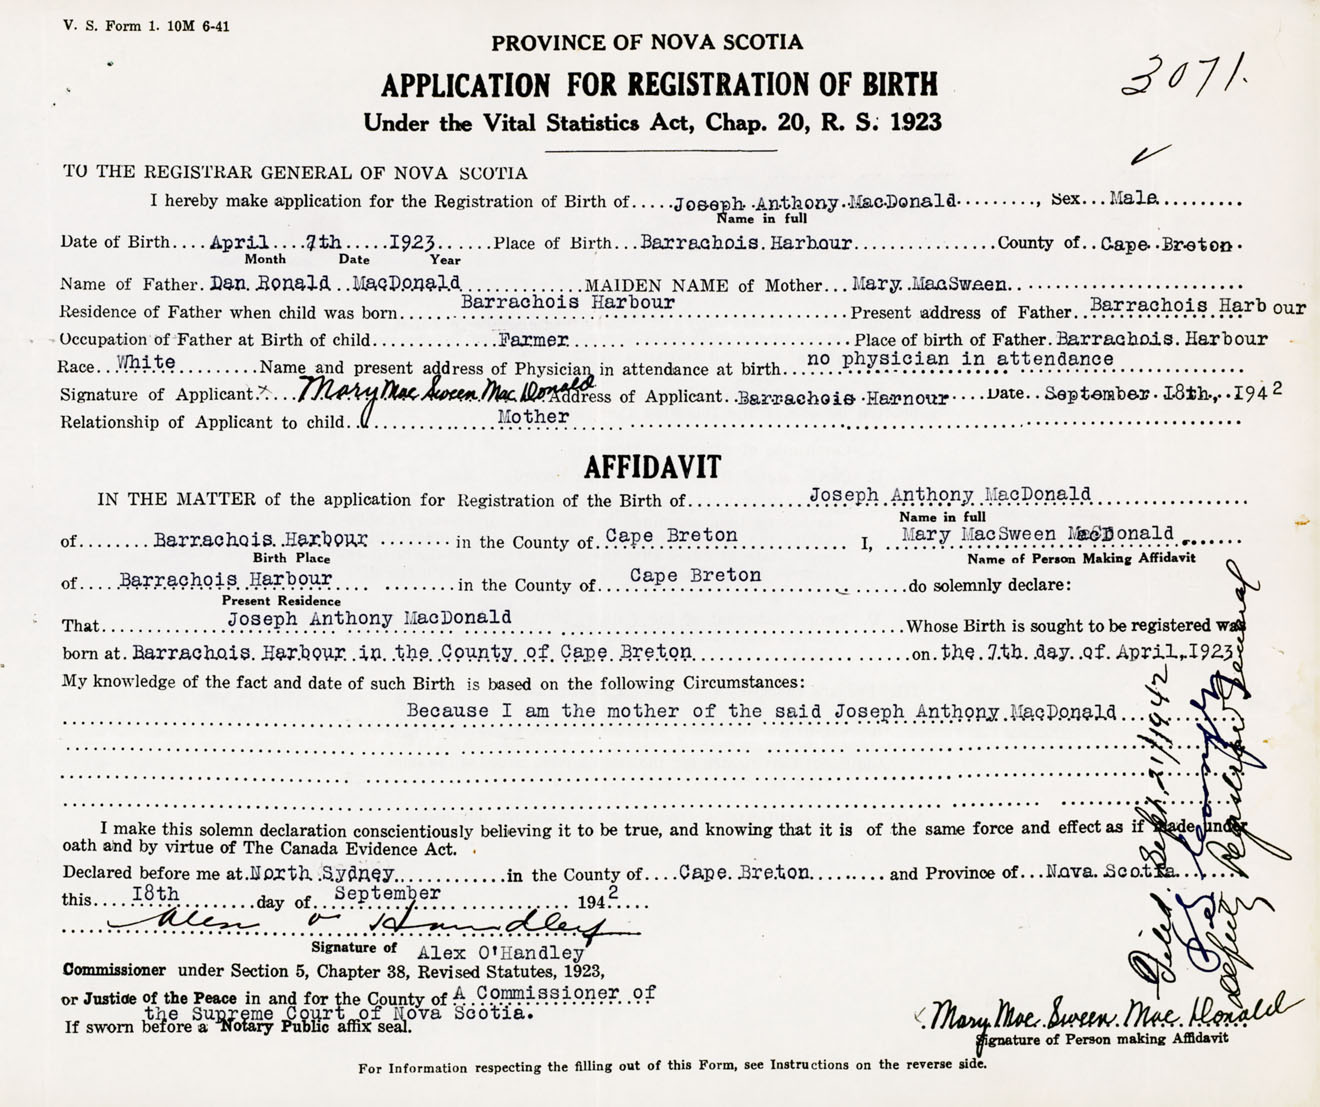 V. S. Form 1. 10M 6-41
PROVINCE OF NOVA SCOTIA
3071.
APPLICATION FOR REGISTRATION OF BIRTH
Under the Vital Statistics Act, Chap. 20, R. S. 1923
TO THE REGISTRAR GENERAL OF NOVA SCOTIA
I hereby make application for the Registration of Birth of.....Joseph Anthony MacDonald........., Sex...Male..........
Name in full
Date of Birth....April....7th.....1923......Place of Birth...Barrachois Harbour................County of..Cape Breton.
Month Date Year
Name of Father. Dan Ronald MacDonald............MAIDEN NAME of Mother...Mary MacSween..
Residence of Father when child was born......Barrachois Harbour......Present address of Father..Barrachois Harbour
Occupation of Father at Birth of child..............Farmer..............Place of birth of Father.Barrachois Harbour
Race..White.........Name and present address of Physician in attendance at birth...no physician in attendance
Signature of Applicant.x...Mary Mac Sween Mac Donald Address of Applicant..Barrachois Harnour....Date..September 18th,..1942
Relationship of Applicant to child...............Mother
AFFIDAVIT
IN THE MATTER of the application for Registration of the Birth of............Joseph Anthony MacDonald
Name in full
of........Barrachois Harbour........in the County of Cape Breton I, Mary MacSween MacDonald
Birth Place Name of Person Making Affidavit
of.....Barrachois Harbour.........in the County of....Cape Breton.......do solemnly declare:
Present Residence
That............Joseph Anthony MacDonald............Whose Birth is sought to be registered was
born at.Barrachois Harbour in the County of Cape Breton............on.the 7th day of April, 1923
My knowledge of the fact and date of such Birth is based on the following Circumstances:
Because I am the mother of the said Joseph Anthony MacDonald
I make this solemn declaration conscientiously believing it to be true, and knowing that it is of the same force and effect as if made under
oath and by virtue of The Canada Evidence Act.
Declared before me at.North Sydney............in the County of....Cape Breton.........and Province of...Nova Scotia
this....18th........day of...September............1942....
Alex O'Handley
Signature of Alex O'Handley
Commissioner under Section 5, Chapter 38, Revised Statutes, 1923,
or Justice of the Peace in and for the County of A Commissioner of
the Supreme Court of Nova Scotia.
If sworn before a Notary Public affix seal.
Mary Mac Sween Mac Donald
Signature of Person making Affidavit
For Information respecting the filling out of this Form, see Instructions on the reverse side.
Filed Sept. 21/1942
Deputy Registrar General